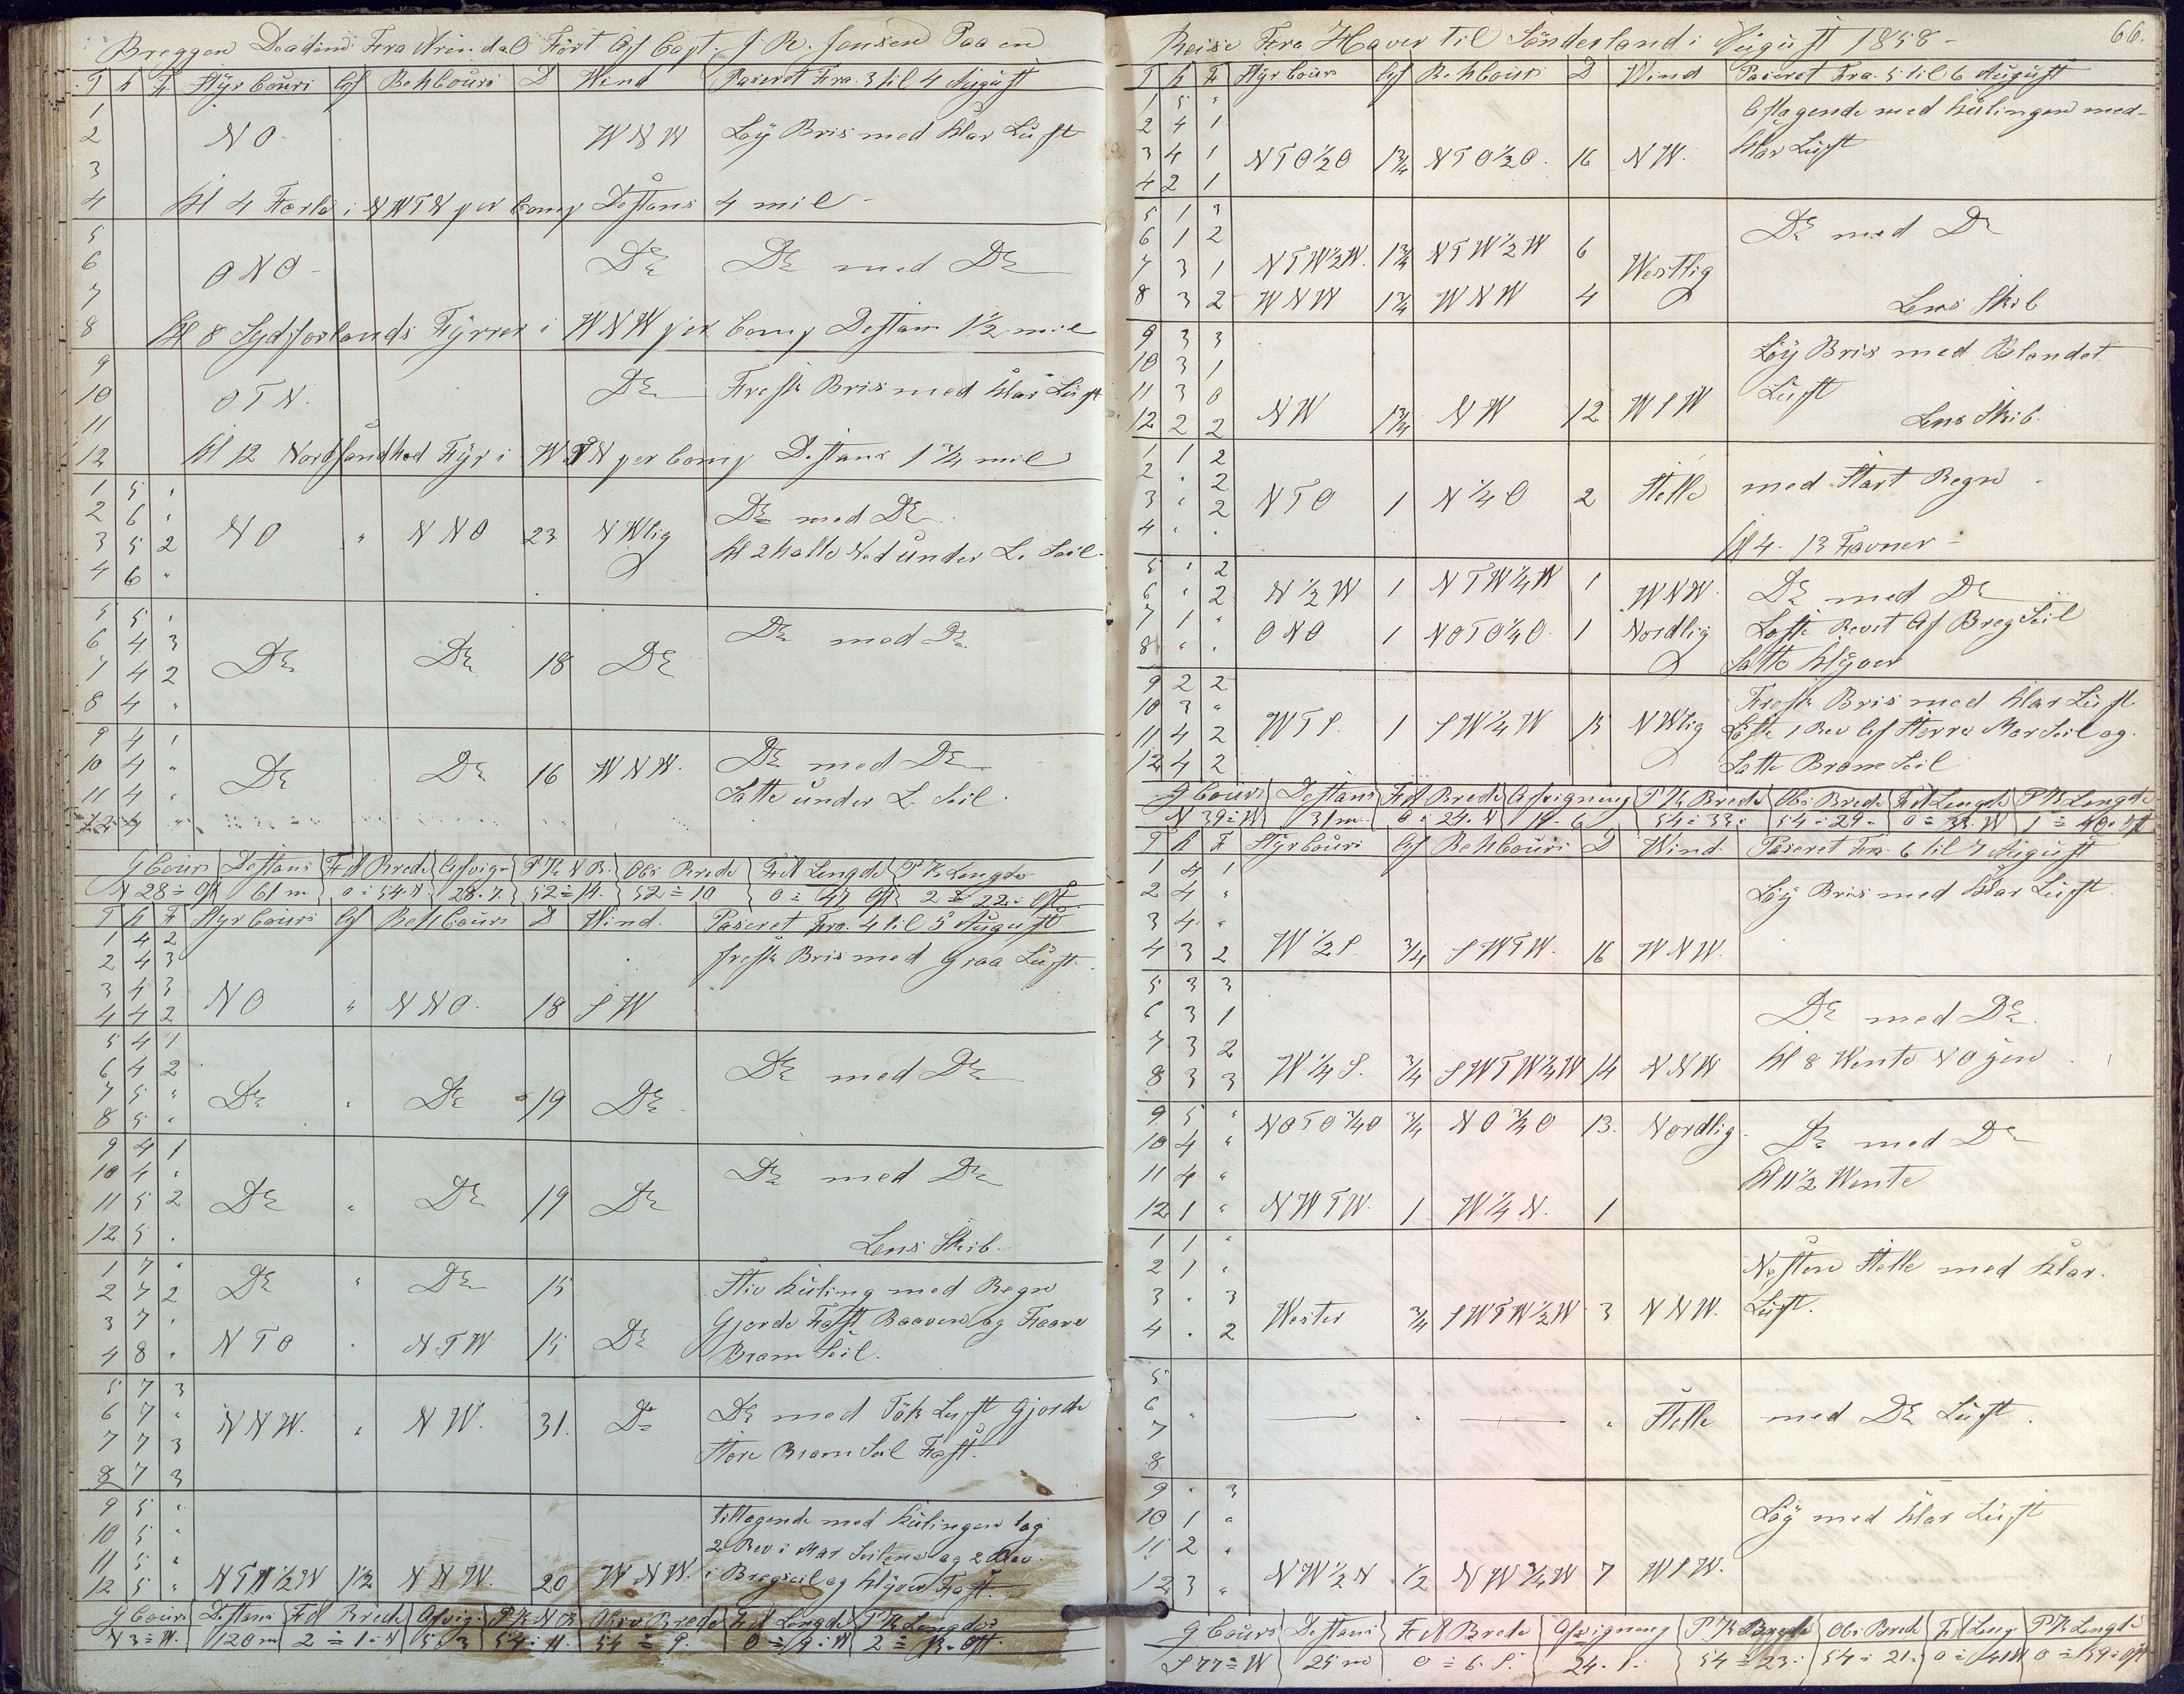 Breggen Deadem Fra Arendal Fört Af Capt. J R. Jensen Paa en
T K F Styrbours Af Rehbours D Wind Paseret Fra 3 til 4 August
1
2 NO WNW Löÿ Bris med klar Lüft
3
4 Kl 4 i NWTN per Comp Destans 4 mil
5
6 ONO DE DE med DE
7
8 Kl 8 Sydforlands Fÿrret i WNW per Comp Destans 1 1/2 mil
9
10 OTN DE Fresk Bris med klar Lüft
11
12 Kl 12 Fÿr i per Comp Destans 1 3/4 mil
1 5 "
2 6 " DE med DE
3 5 2 NO " NNO 23 NWlig Kl 2 Ned ünder Le Seil
4 6 "
5 5 "
6 4 3 DE med DE
7 4 2 DE DE 18 DE
8 4 "
9 4 1
10 4 " DE DE 16 WNW. DE med DE
11 4 " Satte ünder L. Seil.
12 4 "
G Cours Destans F d Brede Afvign P K N B. Obs Brede F d Lengde P K Lengde
N 28 Ost 61 m 0 54 N 28.7 52 14. 52 10 0 47 Ost 2 22 Ost
T K F Styrbours Af Rehbours D Wind. Paseret Fra. 4 til 5 August
1 4 2
2 4 3 fresk Bris med Graa Lüft.
3 4 3
4 4 2 NO " NNO. 18 SW
5 4 1
6 4 2 DE med DE
7 5 " DE " DE 19 DE
8 5 "
9 4 1
10 4 " DE med DE
11 5 2 DE " DE 19 DE
12 5 . Lens Skib.
1 7 "
2 7 2 DE " DE 15 Stiv Küling med Regn
3 7 " Gjorde Fast Raaven og Faare
4 8 " NTO " NTW 15 DE Bram Seil.
5 7 3
6 7 " NNW. " NW. 31. DE DE med Tök Luft Gjorde
7 7 3 Store Bram Seil Fast.
8 7 3
9 5 " tiltagende med Külingen tog
10 5 " 2 Rev i Mar Seilene og 2 Rev
11 5 "
12 5 " NTW1/2W 1 1/2 NNW. 20 WNW. i Bregseil og Klÿver Fast.
G Cours Destans F d Brede Afvig. P K N B Obs Brede F d Lengde P K Lengde
N 3 W. 120 m 2 1 N 5.3 54 11. 54 9. 0 9 W 2 13 Ost.
Reise Fra Haver til Sönderland i August 1858 - 66.
T K F Styrbours Af Rehbours D Wind Paseret Fra. 5 til 6 August
1 5 " Aftagende med Külingen med
2 4 1
3 4 1 NTO1/2O 1 3/4 NTO1/2O. 16 NW. klar Lüft
4 2 1
5 1 3
6 1 2 DE med DE
7 3 1 NTW1/2W. 1 3/4 NTW1/2W 6 Westlig
8 3 2 WNW 1 3/4 WNW 4 Lens Skib
9 3 3
10 3 1 Löÿ Bris med Blandet
11 3 0 Lüft
12 2 2 NW 1 3/4 NW 12 WSW Lens Skib.
1 1 2
2 . 2 med Start Regn
3 " 2 NTO 1 N1/4O 2 Stelle
4 " " Kl 4 - 13 Favner
5 " 2
6 " 2 N1/2W 1 NTW1/4W 1 WNW. DE med DE
7 1 " ONO 1 NOTO1/4O. 1 Nordlig Revet Af Breg Seil
8 " . Satte Klÿver
9 2 2 Fresk Bris med klar Lüft
10 3 "
11 4 2 WTS. 1 SW1/4W 15 NWlig 1 Rev Af Mar Seil og
12 4 2 Satte Bram Seil
G Cours Destans F d Brede Afvigning P K Brede Obs Brede F d Lengde P K Lengde
N 39 W 31 m 0 24. N 19. 6 54 33. 54 29. 0 W 1 40 Ost
T K F Styrbours Af Rehbours D Wind. Paseret Fra. 6 til 7 August
1 4 1
2 4 " Löÿ Bris med klar Lüft.
3 4 "
4 3 2 W1/2S. 3/4 SWTW. 16 WNW.
5 3 3
6 3 1 DE med DE
7 3 2
8 3 3 W1/4S. 3/4 SWTW1/4W 14 NNW Kl 8 Wente
9 5 " NOTO1/4O 3/4 NO3/4O 13. Nordlig.
10 4 " DE med DE
11 4 " Kl 11 1/2 Wente
12 1 " NWTW. 1 W1/4N. 1
1 1 "
2 1 " Nesten Stelle med klar.
3 . 3 Wester 3/4 SWTW1/2W 3 NNW. Lüft.
4 . 2
5
6 " — " — " Stelle med DE Lüft.
7
8
9 . 3
10 1 " Löÿ med klar Lüft
11 2 "
12 3 " NW1/2N 1/2 NW1/4W 7 WSW.
G Cours Destans F d Brede Afvigning P K Brede Obs Brede F d Leng P K Lengde
S 77 W 25 m 0 6 S. 24. 1. 54 23. 54 21. 0 41 W 0 59 Ost